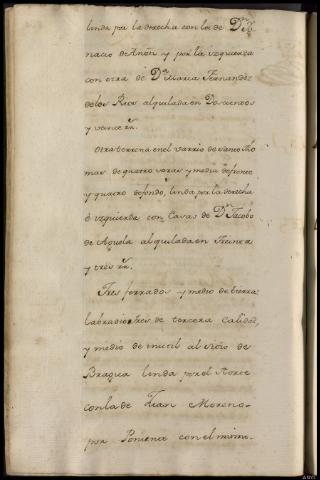 linda por la derecha con la de Dn. Ig
nacio de Anttis y por la yzquierda
con otra de Da. Maria Fernandez
de los Rios alquilada en Doscientos
y veinte rs.
Otra terrena en el varrio de Santo Tho
mas de quatro varas y media de frente
y quatro de fondo, linda por la derecha
è yzquierda con Casas de Dn. Jacobo
de Aguela alquilada en Treinta
y tres rs.
Tres ferrados y medio de tierra
Labradio tres de tercera calidad,
y medio de inutil al sitio de
Bragua linda por el Norte
con la de Juan Moreno
por Poniente con el mismo